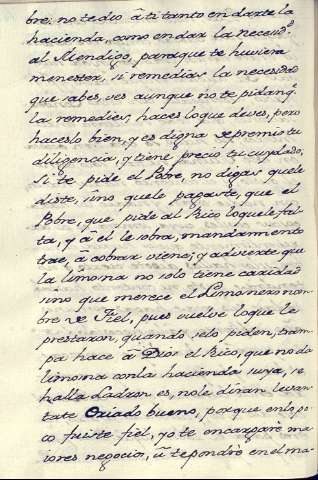 bre; no te dio â ti tanto en darte la
hacienda, como en dar la necesid.º
al Mendigo, paraque te huviera
menester, si remedias la necesidad
que sabes, ves aunque no te pidan q.e
la remedies, haces loque deves, pero
haceslo bien, y es digna de premio tu
diligencia, y tiene precio tu cuydado,
si te pide el Pobre, no digas quele
diste, sino quele pagaste, que el
Pobre, que pide al Rico loquele fal-
ta, y â el le sobra, mandamiento
trae, â cobrar viene; y advierte que
la limosna no solo tiene caridad
sino que merece el Limosnero nom-
bre de Fiel, pues vuelve loque le
prestaron, quando selo piden, tram-
pa hace â Dios el Rico, que no da
limosna conla hacienda suya, se
halla Ladron es, nole diran levan-
tate Criado bueno, porque enlo po-
co fuiste fiel, yo te encargarè ma-
iores negocios, û te pondrè en el ma-